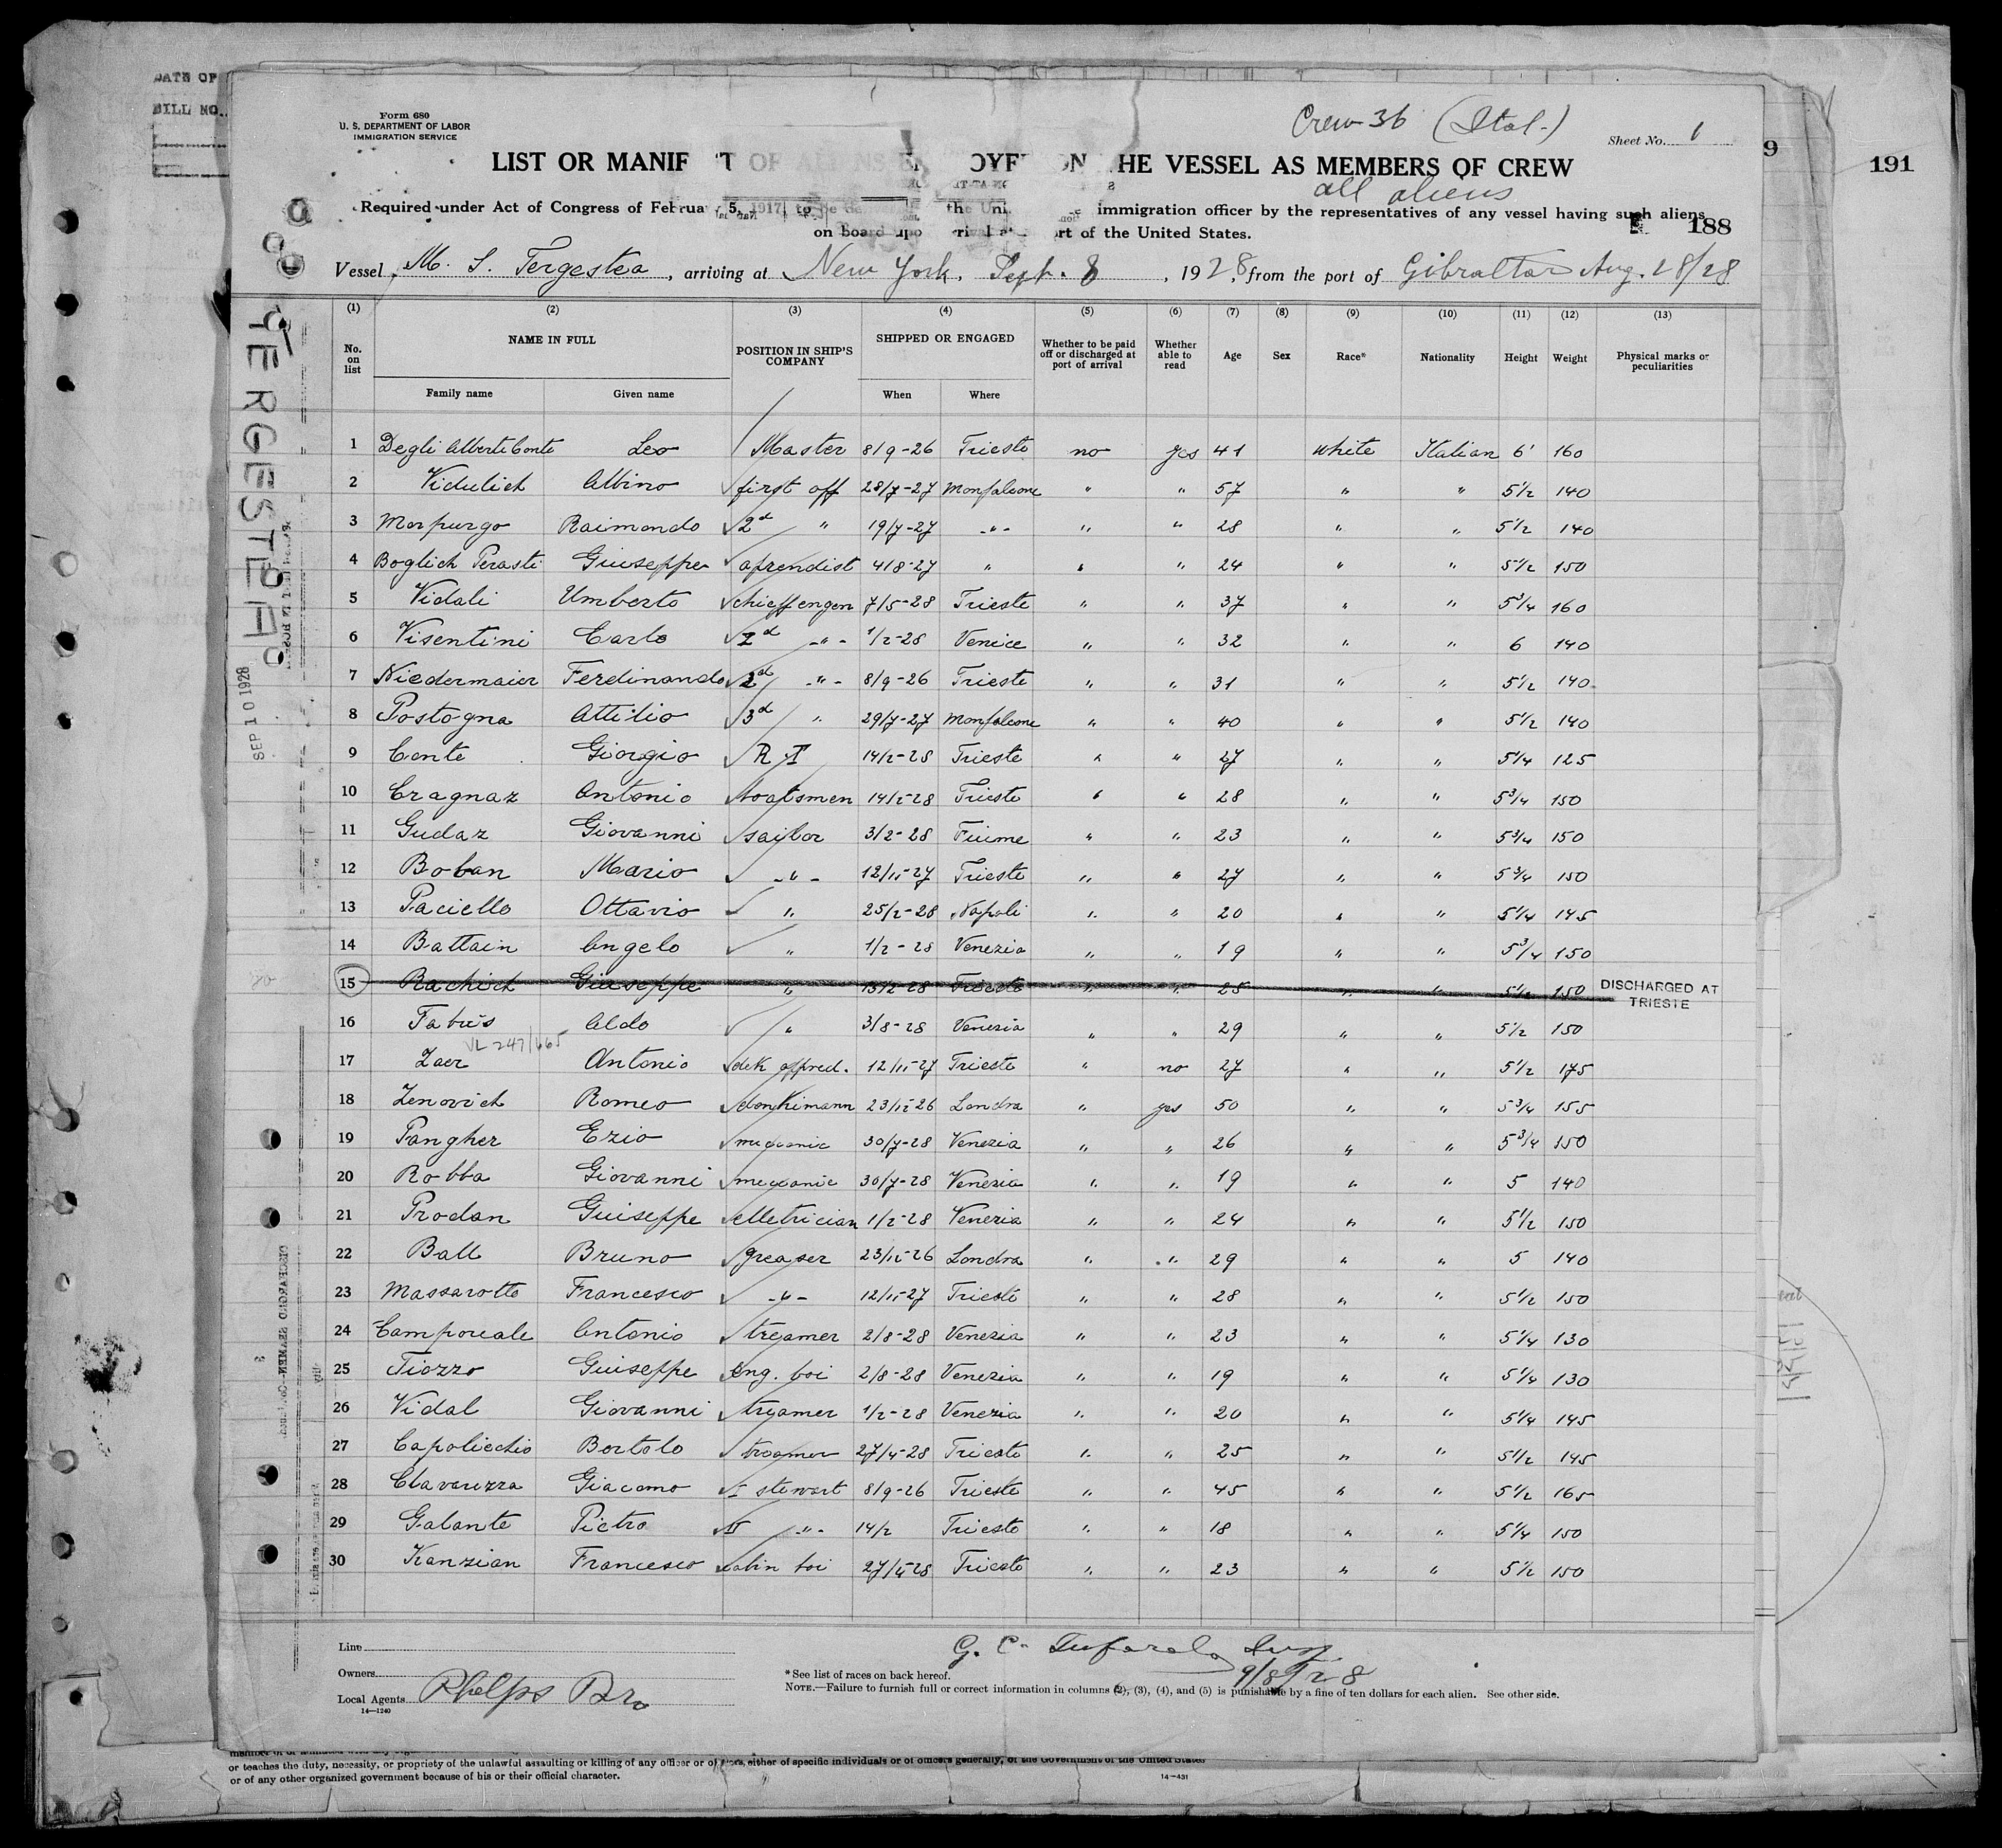 DATE OF
BILL NO.
Form 680
U. S. DEPARTMENT OF LABOR
IMMIGRATION SERVICE
Crew 36 (Ital.)
Sheet No. 1
9
191
LIST OR MANIF THE VESSEL AS MEMBERS OF CREW
all aliens
Required under Act of Congress of February 5, 1917, to be immigration officer by the representatives of any vessel having such aliens
on board upon arrival at port of the United States.
188
Vessel M. S. Tergestea, arriving at New York, Sept. 8, 1928, from the port of Gibraltar Aug. 28/28
TERGESTEA
SEP 10 1928
(1) (2) (3) (4) (5) (6) (7) (8) (9) (10) (11) (12) (13)
No. on list NAME IN FULL POSITION IN SHIP'S COMPANY SHIPPED OR ENGAGED Whether to be paid off or discharged at port of arrival Whether able to read Age Sex Race* Nationality Height Weight Physical marks or peculiarities
Family name Given name When Where
1 Degli Alberti Conte Leo Master 8/9-26 Trieste no yes 41 white Italian 6' 160
2 Vidulich Albino first off 28/7-27 Monfalcone " " 57 " " 5 1/2 140
3 Morpurgo Raimondo 2d " 19/7-27 -"- " " 28 " " 5 1/2 140
4 Boglich Perasti Giuseppe aprendist 4/8-27 " " " 24 " " 5 1/2 150
5 Vidali Umberto chieff engen 7/5-28 Trieste " " 37 " " 5 3/4 160
6 Visentini Carlo 2d -"- 1/2-28 Venice " " 32 " " 6 140
7 Niedermaier Ferdinando 2d -"- 8/9-26 Trieste " " 31 " " 5 1/2 140
8 Postogna Attilio 3d " 29/7-27 Monfalcone " " 40 " " 5 1/2 140
9 Conte Giorgio R T 14/2-28 Trieste " " 27 " " 5 1/4 125
10 Cragnaz Antonio boatsmen 14/2-28 Trieste " " 28 " " 5 3/4 150
11 Gudaz Giovanni sailor 3/2-28 Fiume " " 23 " " 5 3/4 150
12 Boban Mario -"- 12/11-27 Trieste " " 27 " " 5 3/4 150
13 Paciello Ottavio " 25/2-28 Napoli " " 20 " " 5 1/4 145
14 Battain Angelo " 1/2-28 Venezia " " 19 " " 5 3/4 150
15 Rachich Giuseppe " 13/2-28 Trieste " " 25 " " 5 1/2 150 DISCHARGED AT TRIESTE
16 Fabris Aldo " 3/8-28 Venezia " " 29 " " 5 1/2 150
VL 247/665
17 Zaer Antonio dek appred. 12/11-27 Trieste " no 27 " " 5 1/2 175
18 Zenovich Romeo donkimann 23/12-26 Londra " yes 50 " " 5 3/4 155
19 Pangher Ezio 30/7-28 Venezia " " 26 " " 5 3/4 150
20 Robba Giovanni 30/7-28 Venezia " " 19 " " 5 140
21 Prodan Giuseppe elletrician 1/2-28 Venezia " " 24 " " 5 1/2 150
22 Ball Bruno greaser 23/12-26 Londra " " 29 " " 5 140
23 Massarotto Francesco -"- 12/11-27 Trieste " " 28 " " 5 1/2 150
24 Camporeale Antonio treamer 2/8-28 Venezia " " 23 " " 5 1/4 130
25 Tiozzo Giuseppe eng. boi 2/8-28 Venezia " " 19 " " 5 1/4 130
26 Vidal Giovanni treamer 1/2-28 Venezia " " 20 " " 5 1/4 145
27 Capolicchio Bortolo treamer 27/4-28 Trieste " " 25 " " 5 1/2 145
28 Clavarezza Giacomo I stewart 8/9-26 Trieste " " 45 " " 5 1/2 165
29 Galante Pietro II -"- 14/2 Trieste " " 18 " " 5 1/4 150
30 Kanzian Francesco cabin boi 27/4-28 Trieste " " 23 " " 5 1/2 150
Line
Owners
Local Agents Phelps Bro
14—1240
G. C. Insp
9/8/28
* See list of races on back hereof.
NOTE.—Failure to furnish full or correct information in columns (2), (3), (4), and (5) is punishable by a fine of ten dollars for each alien. See other side.
or teaches the duty, necessity, or propriety of the unlawful assaulting or killing of any officer or officers, either of specific individuals or of officers generally, of the Government of the United States
or of any other organized government because of his or their official character.
14—431